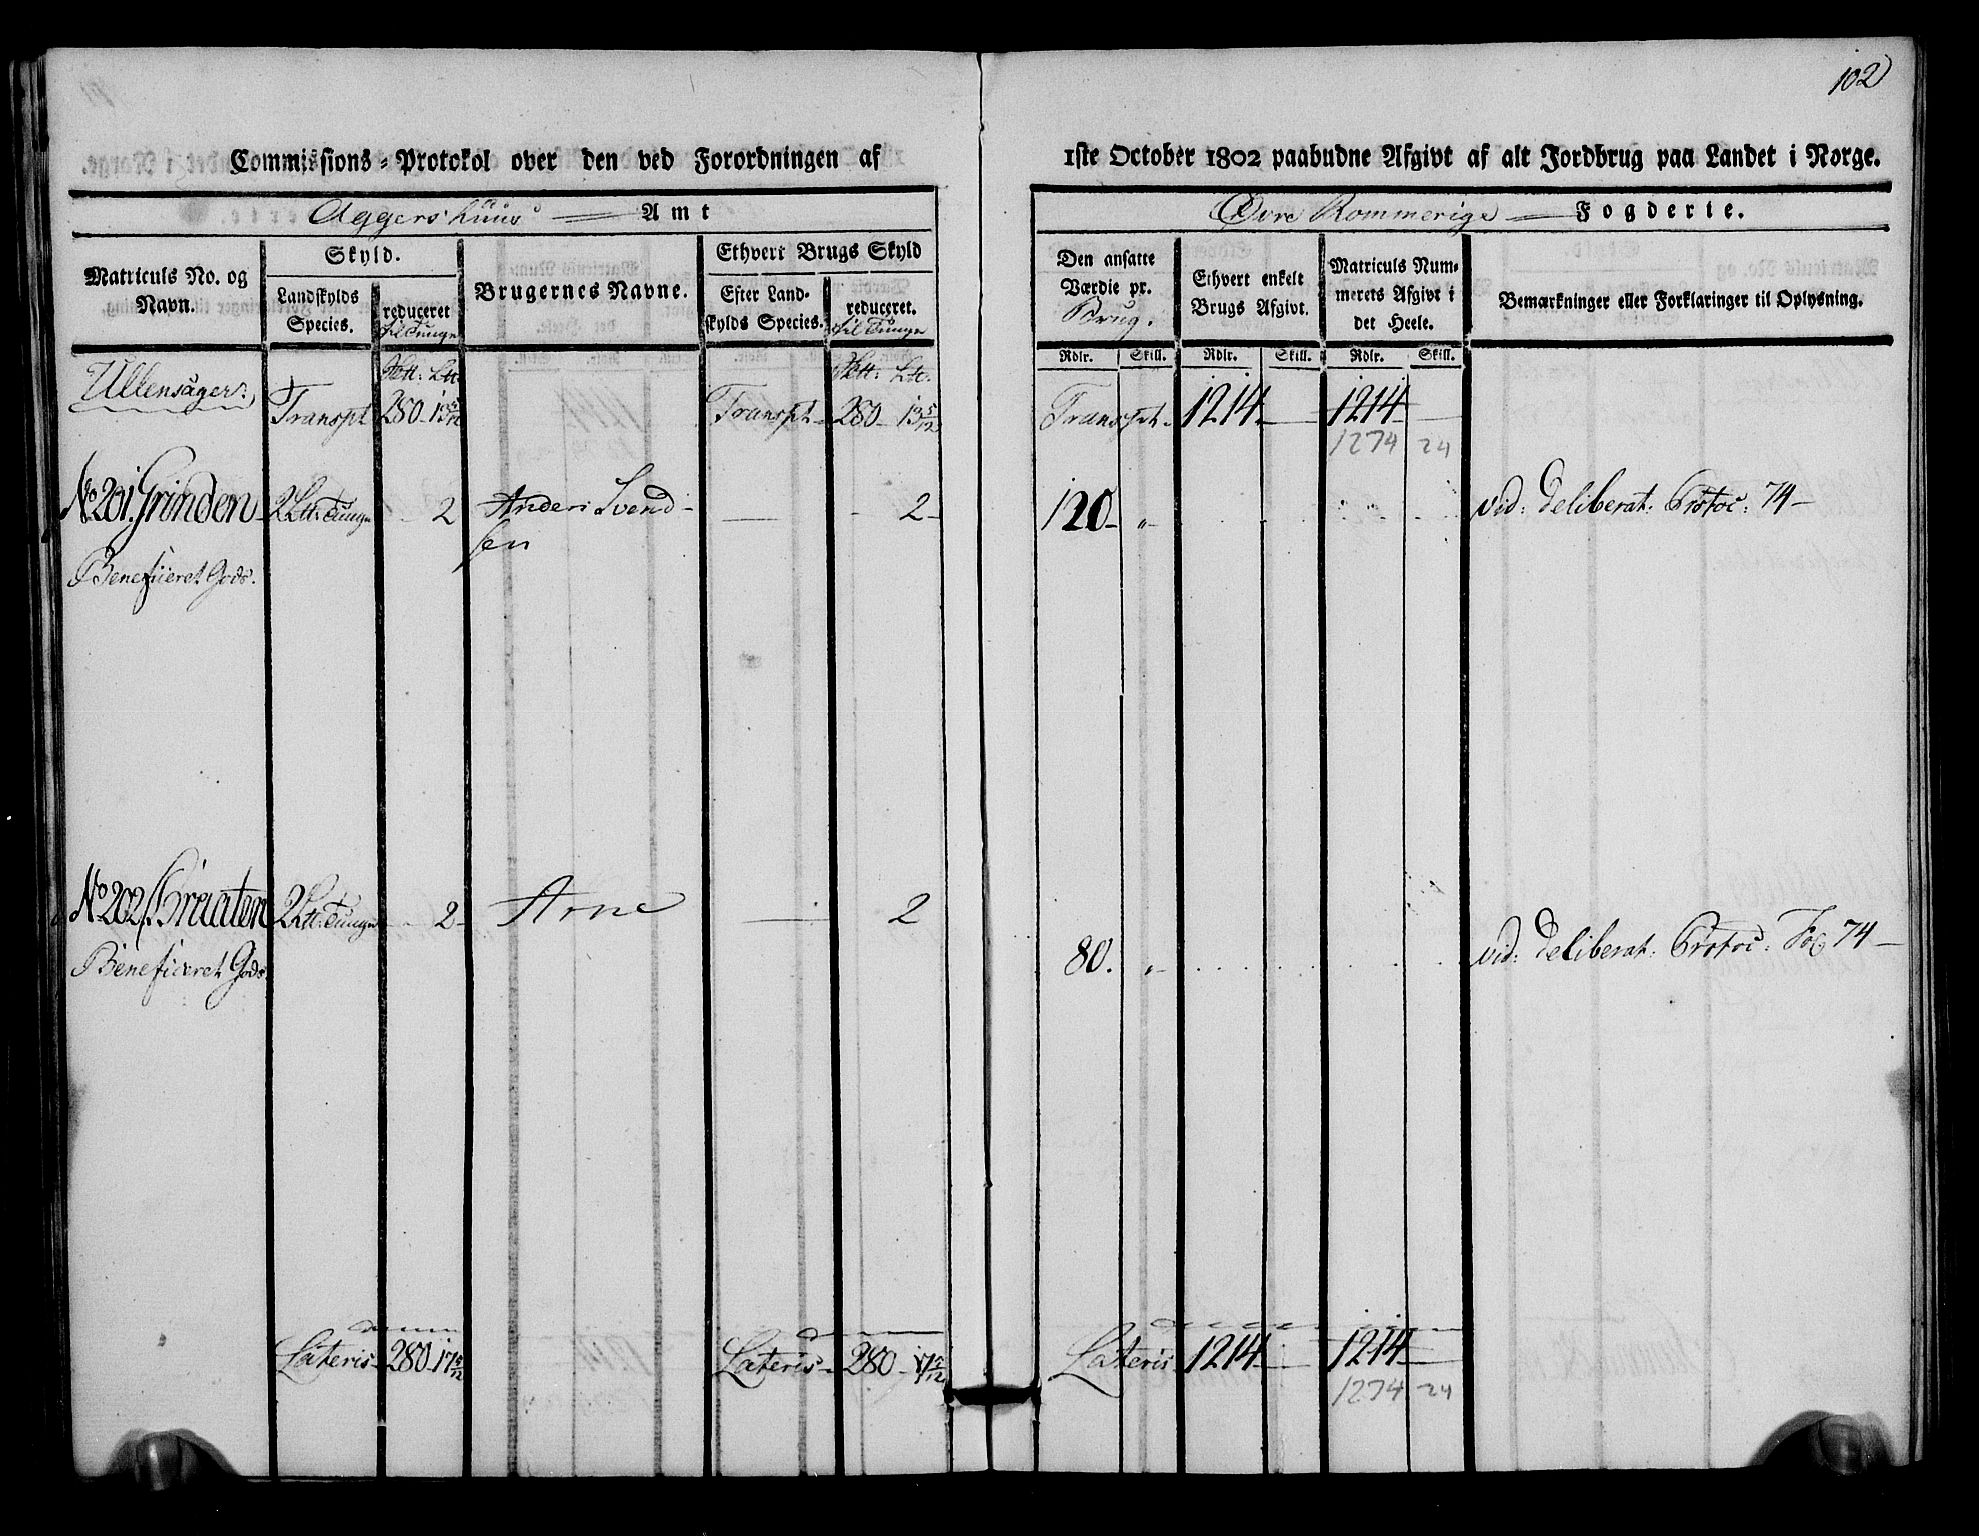 102
Commissions-Protokol over den ved Forordningen af 1ste October 1802 paabudne Afgivt af alt Jordbrug paa Landet i Norge.
Aggershuus Amt
Øvre Rommerige Fogderie.
Matriculs No. og Navn.
Skyld.
Landskylds Species.
reduceret til Tunge
Brugernes Navne.
Ethvert Brugs Skyld
Efter Landskylds Species.
reduceret. til Tunge
Den ansatte Værdie pr. Brug.
Ethvert enkelt Brugs Afgivt.
Matriculs Nummerets Afgivt i det Heele.
Bemærkninger eller Forklaringer til Oplysning.
Rdlr. Skill. Rdlr. Skill. Rdlr. Skill.
Ullensager:
Transpt 280 - 13 5/12 Transpt - 280 - 13 5/12 Transpt. 1214 — 1214 —
1274 24
No 201. Grinden 2 Ltt: Tunge - 2 Anders Svend- — - 2 - 120 - „ - vid: Deliberat: Protoc: 74 —
sen
Beneficeret Gods.
No 202. Braaten 2 Ltt: Tunge - 2 - Arne — 2 80. „ - vid: Deliberat: Protoc: Fol 74 —
Beneficeret Gods
Lateris - 280 - 17 5/12 Lateris - 280 - 17 5/12 Lateris 1214 — 1214 —
1274 24